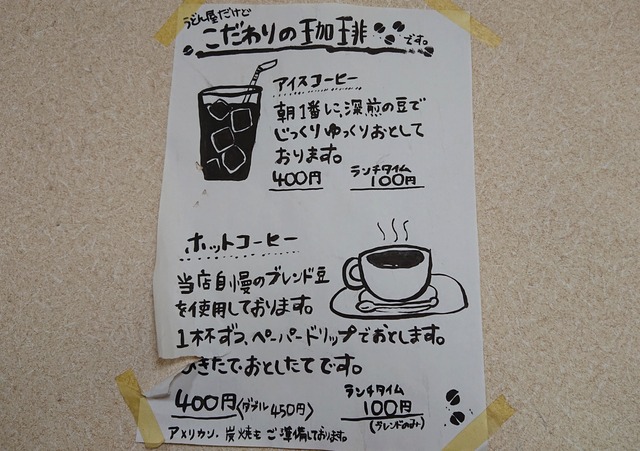 うどん屋だけど
こだわりの珈琲です。
アイスコーヒー
朝1番に、深煎の豆で
じっくりゆっくりおとして
おります。
400円
ランチタイム
100円
ホットコーヒー
当店自慢のブレンド豆
を使用しております。
1杯ずつ、ペーパードリップでおとします。
ひきたて・おとしたてです。
400円(ダブル450円)
ランチタイム
100円
(ブレンドのみ)
アメリカン・炭焼もご準備しております。